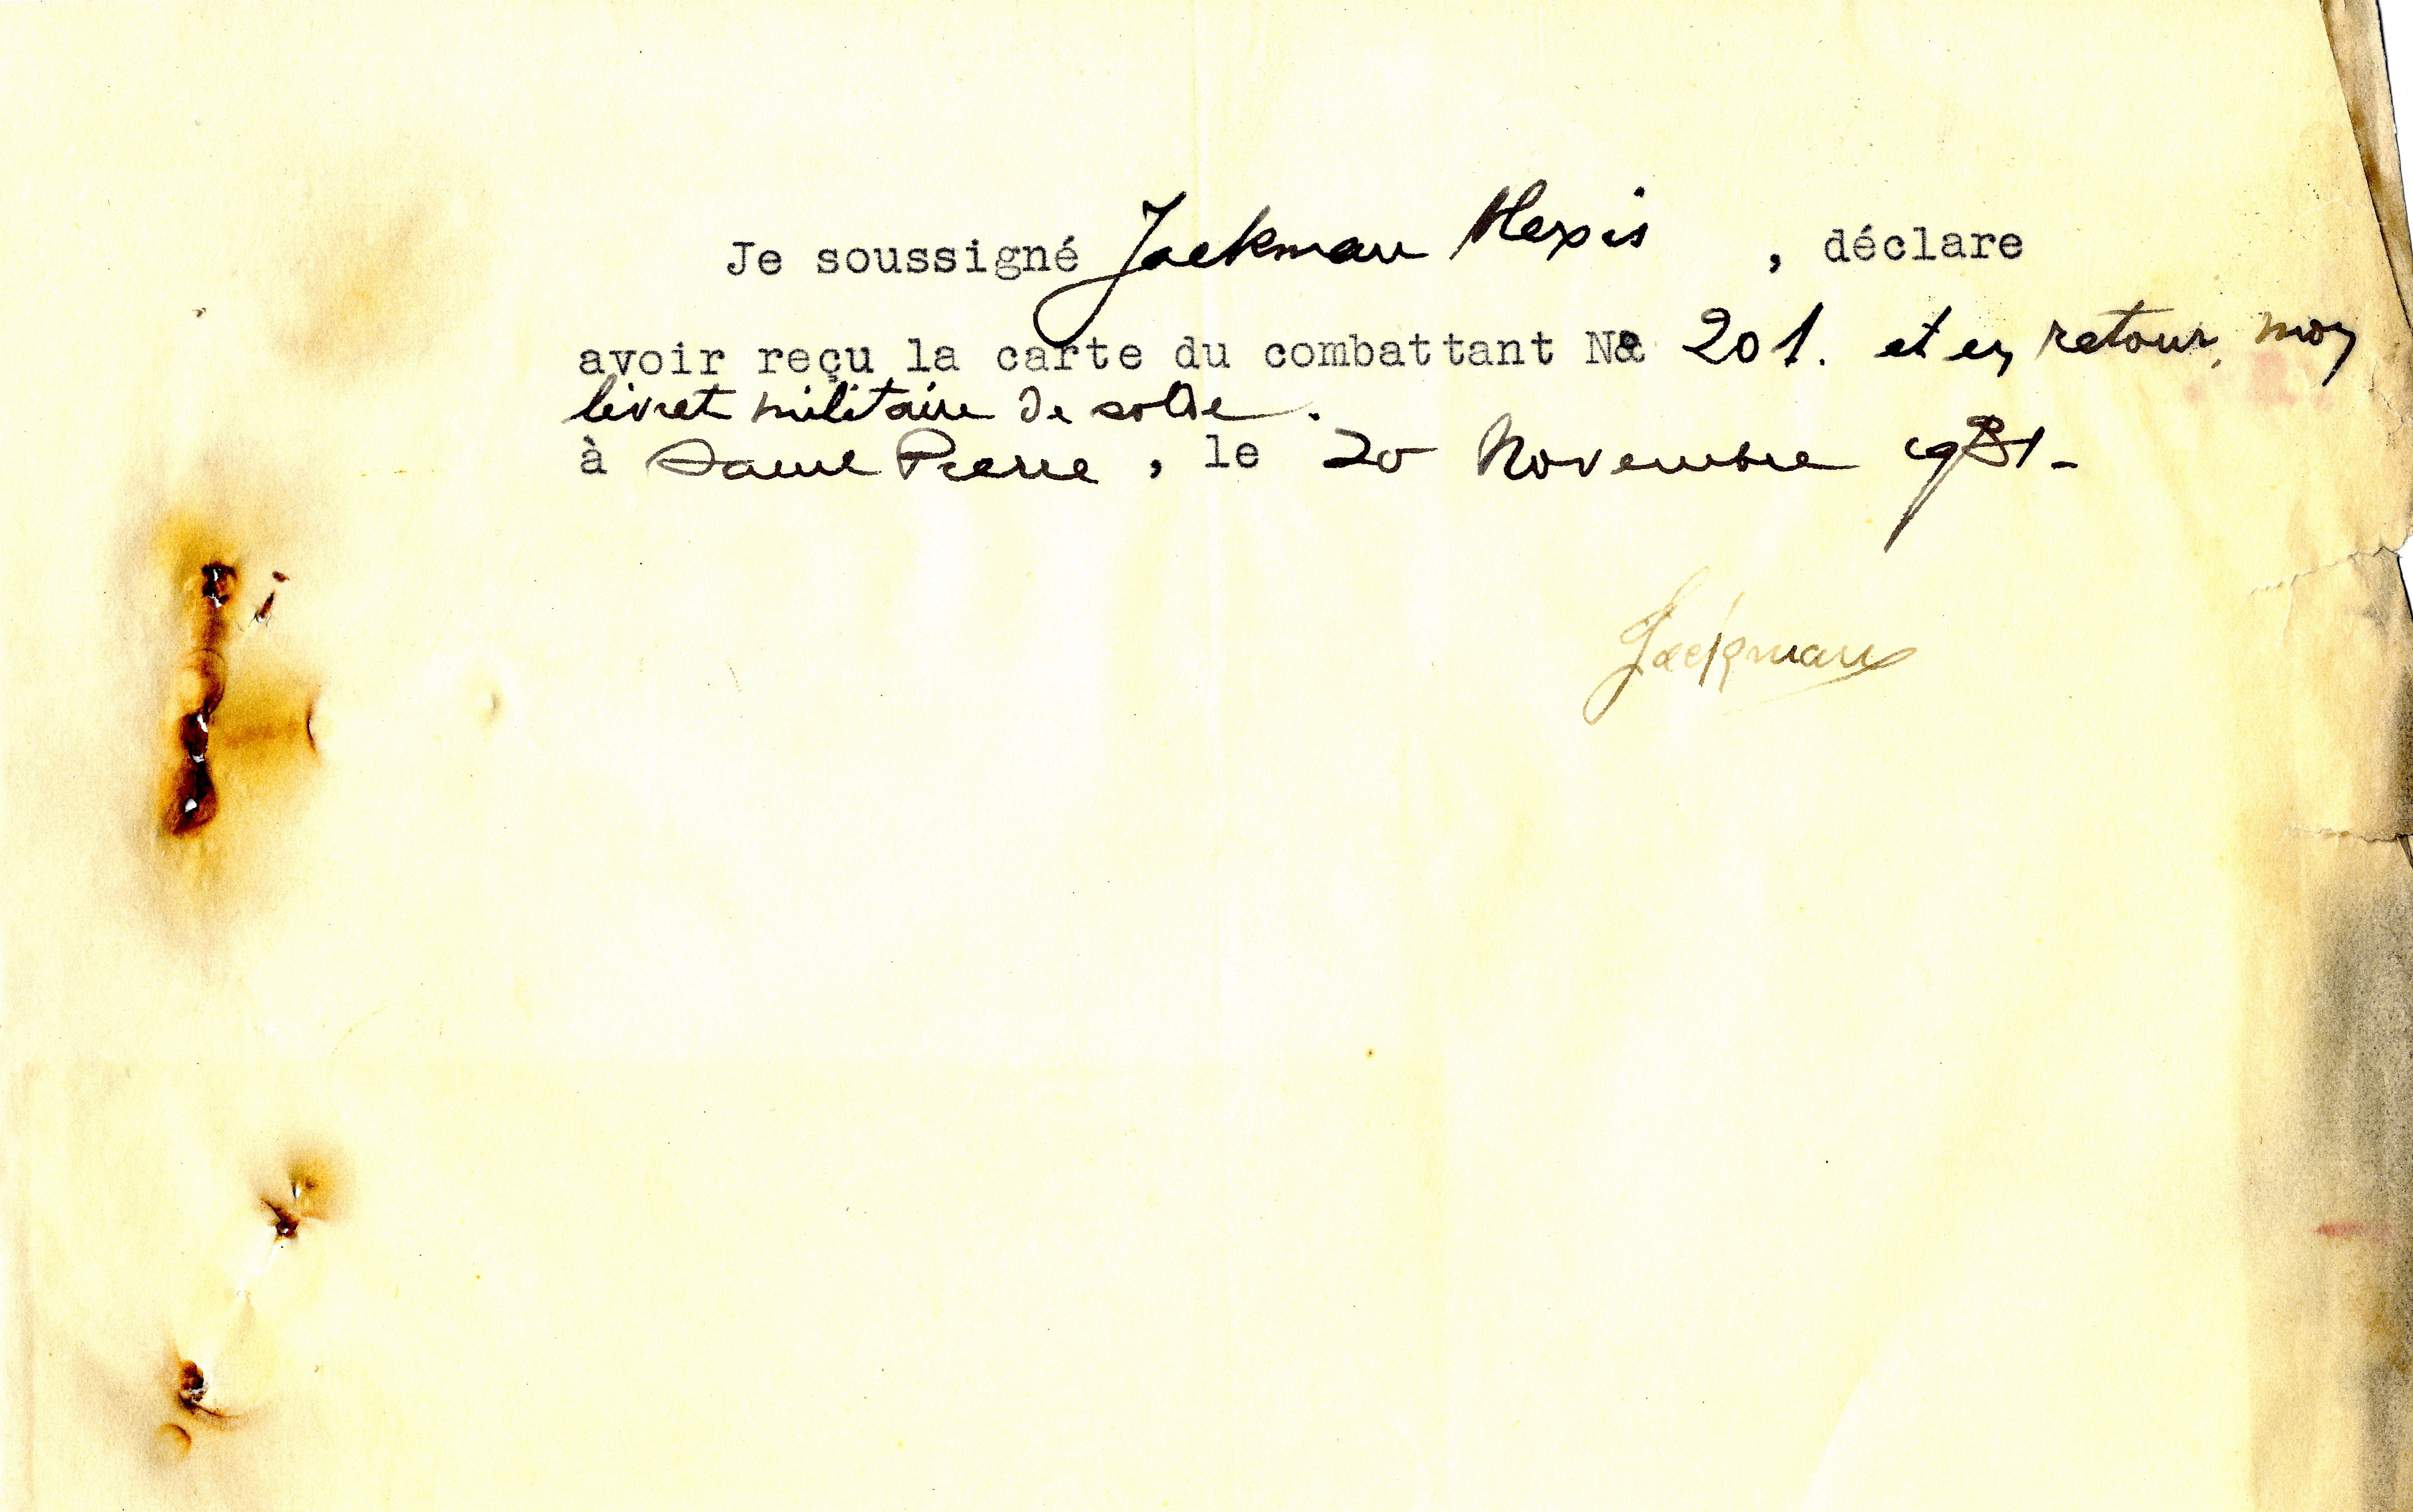 Je soussigné Jackman Alexis , déclare
avoir reçu la carte du combattant No 201. et en retour, mon
livret militaire de solde.
à Saint Pierre , le 20 Novembre 1931-
Jackman